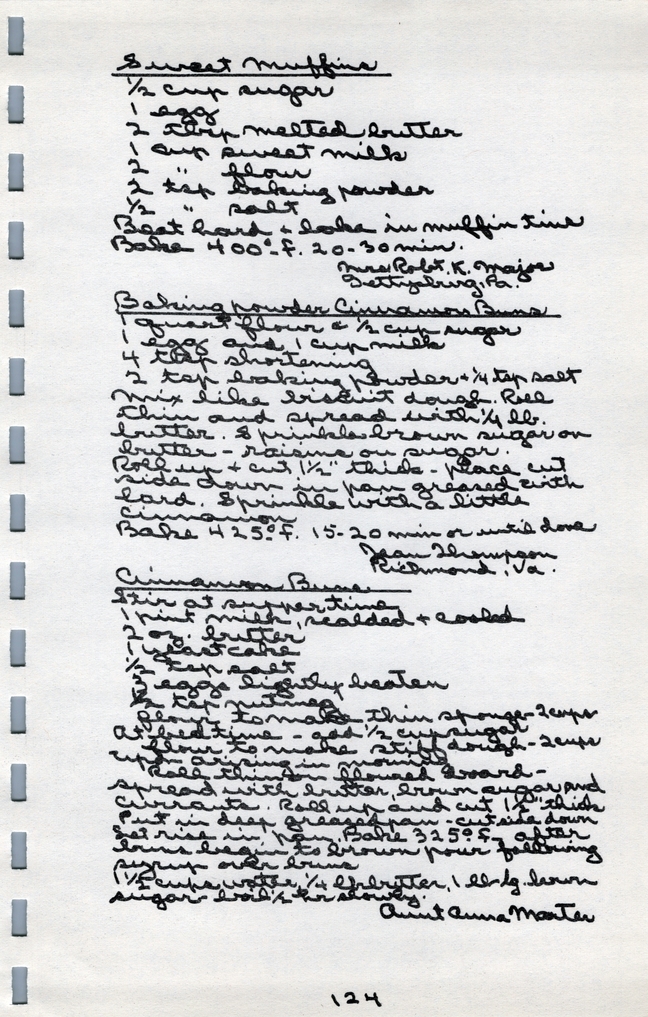 Sweet Muffins
1/2 cup sugar
1 egg
2 tbsp melted butter
1 cup sweet milk
2 " flour
2 tsp baking powder
1/2 " salt
Beat hard & bake in muffin tins
Bake 400°-f. 20-30 min.
Mrs Robt. K. Major
Gettysburg, Pa.
Baking powder Cinnamon Buns
1 quart flour & 1/2 cup sugar
1 egg and 1 cup milk
4 tbsp shortening
2 tsp baking powder + 1/4 tsp salt
Mix like biscuit dough. Roll
thin and spread with 1/4 lb.
butter. Sprinkle brown sugar on
butter - raisins on sugar.
Roll up + cut 1 1/2" thick - place cut
side down in pan greased with
lard. Sprinkle with a little
cinnamon
Bake 425° f. 15-20 min or until done
Jean Thompson
Richmond, Va.
Cinnamon Buns
Stir at supper time
1 pint milk, scalded + cooled
2 oz. butter
1 yeast cake
1/2 tsp salt
3 eggs lightly beaten
1/2 tsp nutmeg
flour to make thin sponge - 2 cups
At bed time - add 1/2 cup sugar
flour to make stiff dough - 2 cups
upon arising in morning
Roll thin on floured board -
spread with butter, brown sugar and
currants. Roll up and cut 1 1/2" thick
Put in deep greased pan - cut side down
Let rise in pan. Bake 325° f. after
buns begin to brown pour following
syrup over buns
1 1/2 cups water, 1/4 lb butter, 1 lb lg. brown
sugar - boil 1/2 hr slowly.
Aunt Anna Marter
124